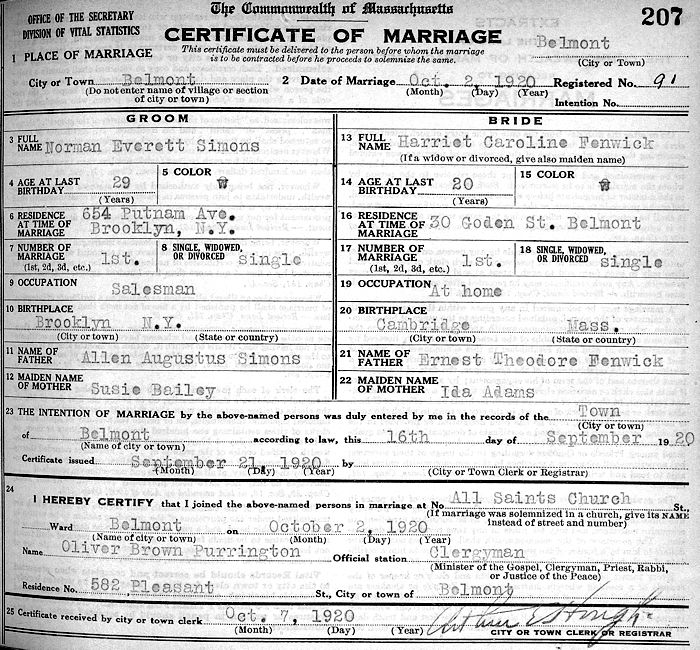 OFFICE OF THE SECRETARY
DIVISION OF VITAL STATISTICS
The Commonwealth of Massachusetts
207
CERTIFICATE OF MARRIAGE
This certificate must be delivered to the person before whom the marriage
is to be contracted before he proceeds to solemnize the same.
Belmont
(City or Town)
1 PLACE OF MARRIAGE
City or Town Belmont 2 Date of Marriage Oct. 2, 1920 Registered No. 91
(Do not enter name of village or section
of city or town)
(Month) (Day) (Year)
Intention No.
GROOM BRIDE
3 FULL NAME Norman Everett Simons
13 FULL NAME Harriet Caroline Fenwick
(If a widow or divorced, give also maiden name)
4 AGE AT LAST BIRTHDAY 29 (Years) 5 COLOR W
14 AGE AT LAST BIRTHDAY 20 (Years) 15 COLOR W
6 RESIDENCE AT TIME OF MARRIAGE 654 Putnam Ave.
Brooklyn, N.Y.
16 RESIDENCE AT TIME OF MARRIAGE 30 Goden St. Belmont
7 NUMBER OF MARRIAGE 1st. (1st, 2d, 3d, etc.) 8 SINGLE, WIDOWED, OR DIVORCED single
17 NUMBER OF MARRIAGE 1st. (1st, 2d, 3d, etc.) 18 SINGLE, WIDOWED, OR DIVORCED single
9 OCCUPATION Salesman
19 OCCUPATION At home
10 BIRTHPLACE
Brooklyn N.Y.
(City or town) (State or country)
20 BIRTHPLACE
Cambridge Mass.
(City or town) (State or country)
11 NAME OF FATHER Allen Augustus Simons
21 NAME OF FATHER Ernest Theodore Fenwick
12 MAIDEN NAME OF MOTHER Susie Bailey
22 MAIDEN NAME OF MOTHER Ida Adams
23 THE INTENTION OF MARRIAGE by the above-named persons was duly entered by me in the records of the Town
(City or town)
of Belmont according to law, this 16th day of September 1920
(Name of city or town)
Certificate issued September 21, 1920 by
(Month) (Day) (Year) (City or Town Clerk or Registrar)
24
I HEREBY CERTIFY that I joined the above-named persons in marriage at No All Saints Church St.,
(If marriage was solemnized in a church, give its NAME
instead of street and number)
Ward Belmont on October 2, 1920
(Name of city or town) (Month) (Day) (Year)
Name Oliver Brown Purrington Official station Clergyman
(Minister of the Gospel, Clergyman, Priest, Rabbi,
or Justice of the Peace)
Residence No. 582 Pleasant St., City or town of Belmont
25 Certificate received by city or town clerk Oct. 7, 1920
(Month) (Day) (Year)
CITY OR TOWN CLERK OR REGISTRAR